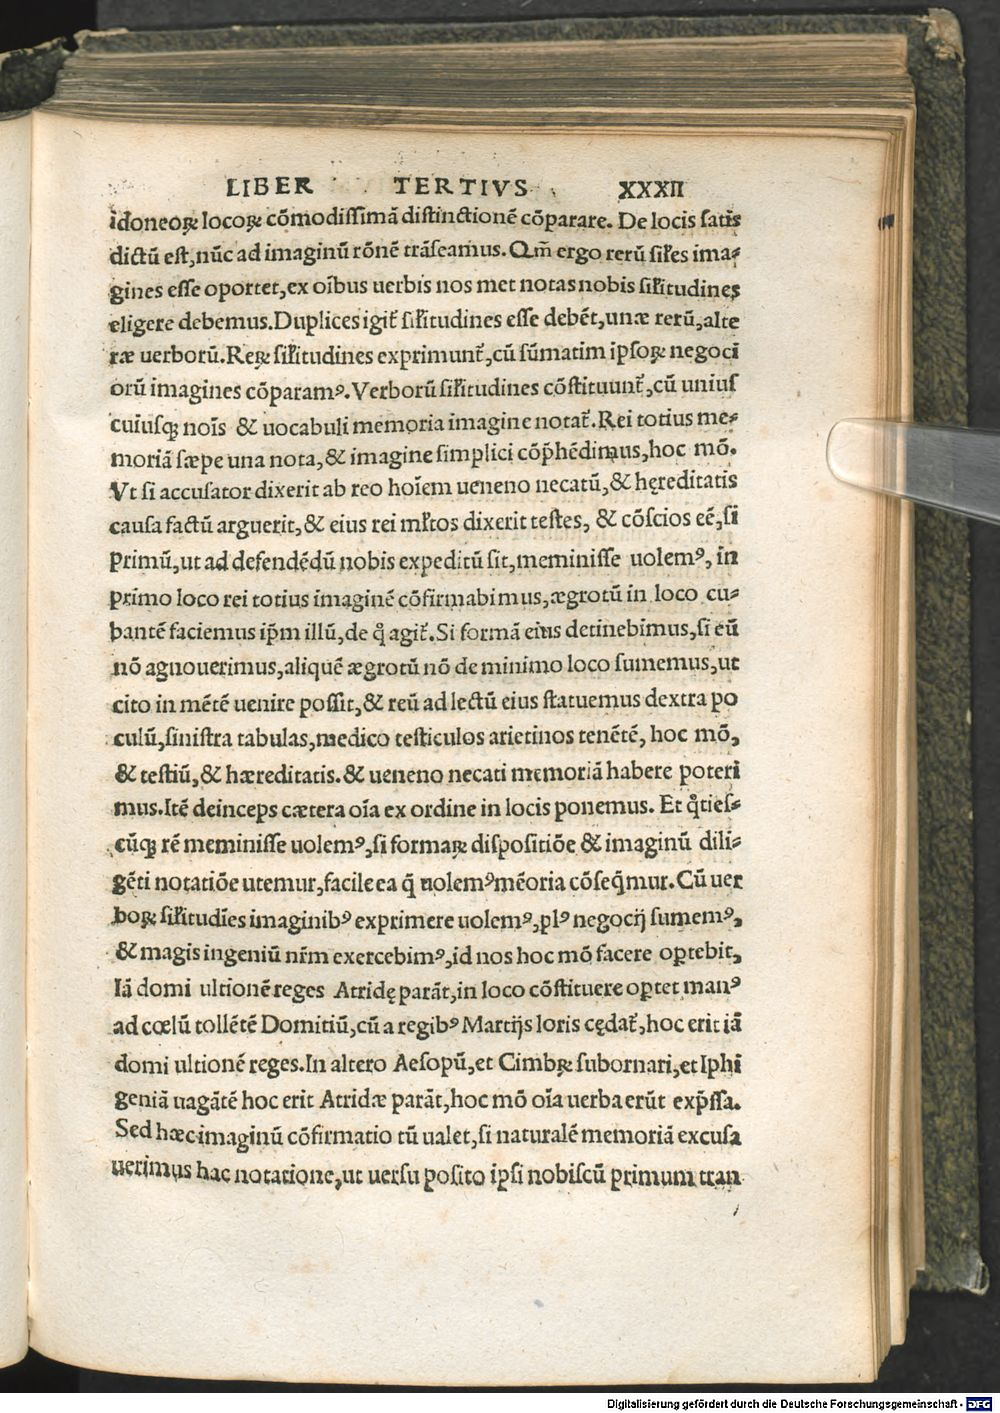 LIBER TERTIVS XXXII
idoneoꝝ locoꝝ cōmodissimā distinctionē cōparare. De locis satis
dictū est,nūc ad imaginū rōnē trāseamus. Qm̄ ergo rerū sił̅es ima⸗
gines esse oportet,ex oībus uerbis nos met notas nobis sił̅itudines
eligere debemus.Duplices igit᷑ sił̅itudines esse debēt,unæ rerū,alte
ræ uerborū.Reꝝ sił̅itudines exprimunt᷑,cū sūmatim ipsoꝝ negoci
orū imagines cōparamꝰ.Verborū sił̅itudines cōstituunt᷑,cū unius
cuiusqꝫ noīs & uocabuli memoria imagine notat᷑.Rei totius me⸗
moriā sæpe una nota,& imagine simplici cōp̄hēdimus,hoc mō.
Vt si accusator dixerit ab reo hoīem ueneno necatū,& hęreditatis
causa factū arguerit,& eius rei mł̅tos dixerit testes, & cōscios eē,si
primū,ut ad defendēdū nobis expeditū sit,meminisse uolemꝰ, in
primo loco rei totius imaginē cōfirmabimus,ægrotū in loco cu⸗
bantē faciemus ip̄m illū,de q̊ agit᷑.Si formā eius detinebimus,si eū
nō agnouerimus,aliquē ægrotū nō de minimo loco sumemus,ut
cito in mētē uenire possit,& reū ad lectū eius statuemus dextra po
culū,sinistra tabulas,medico testiculos arietinos tenētē, hoc mō,
& testiū,& hæreditatis.& ueneno necati memoriā habere poteri
mus.Itē deinceps cætera oīa ex ordine in locis ponemus. Et q̊ties⸗
cūqꝫ rē meminisse uolemꝰ,si formaꝝ dispositiōe & imaginū dili⸗
gēti notatiōe utemur,facile ea q̄ uolemꝰmēoria cōseq̄mur.Cū uer
boꝝ sił̅itudīes imaginibꝰ exprimere uolemꝰ,plꝰ negocij sumemꝰ,
& magis ingeniū nr̄m exercebimꝰ,id nos hoc mō facere oꝑtebit,
Iā domi ultionē reges Atridę parāt,in loco cōstituere oꝑtet manꝰ
ad cœlū tollētē Domitiū,cū a regibꝰ Martijs loris cędat᷑,hoc erit iā
domi ultionē reges.In altero Aesopū,et Cimbꝝ subornari,et Iphi
geniā uagātē hoc erit Atridæ parāt,hoc mō oīa uerba erūt exp̄ssa.
Sed hæc imaginū cōfirmatio tū ualet,si naturalē memoriā excusa
uerimus hac notatione,ut uersu posito ipsi nobiscū primum tran
Digitalisierung gefördert durch die Deutsche Forschungsgemeinschaft - DFG